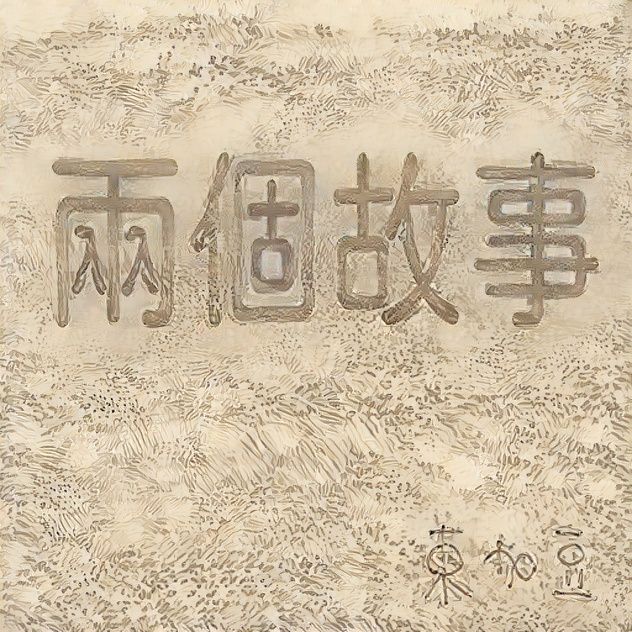 兩個故事
東加豆